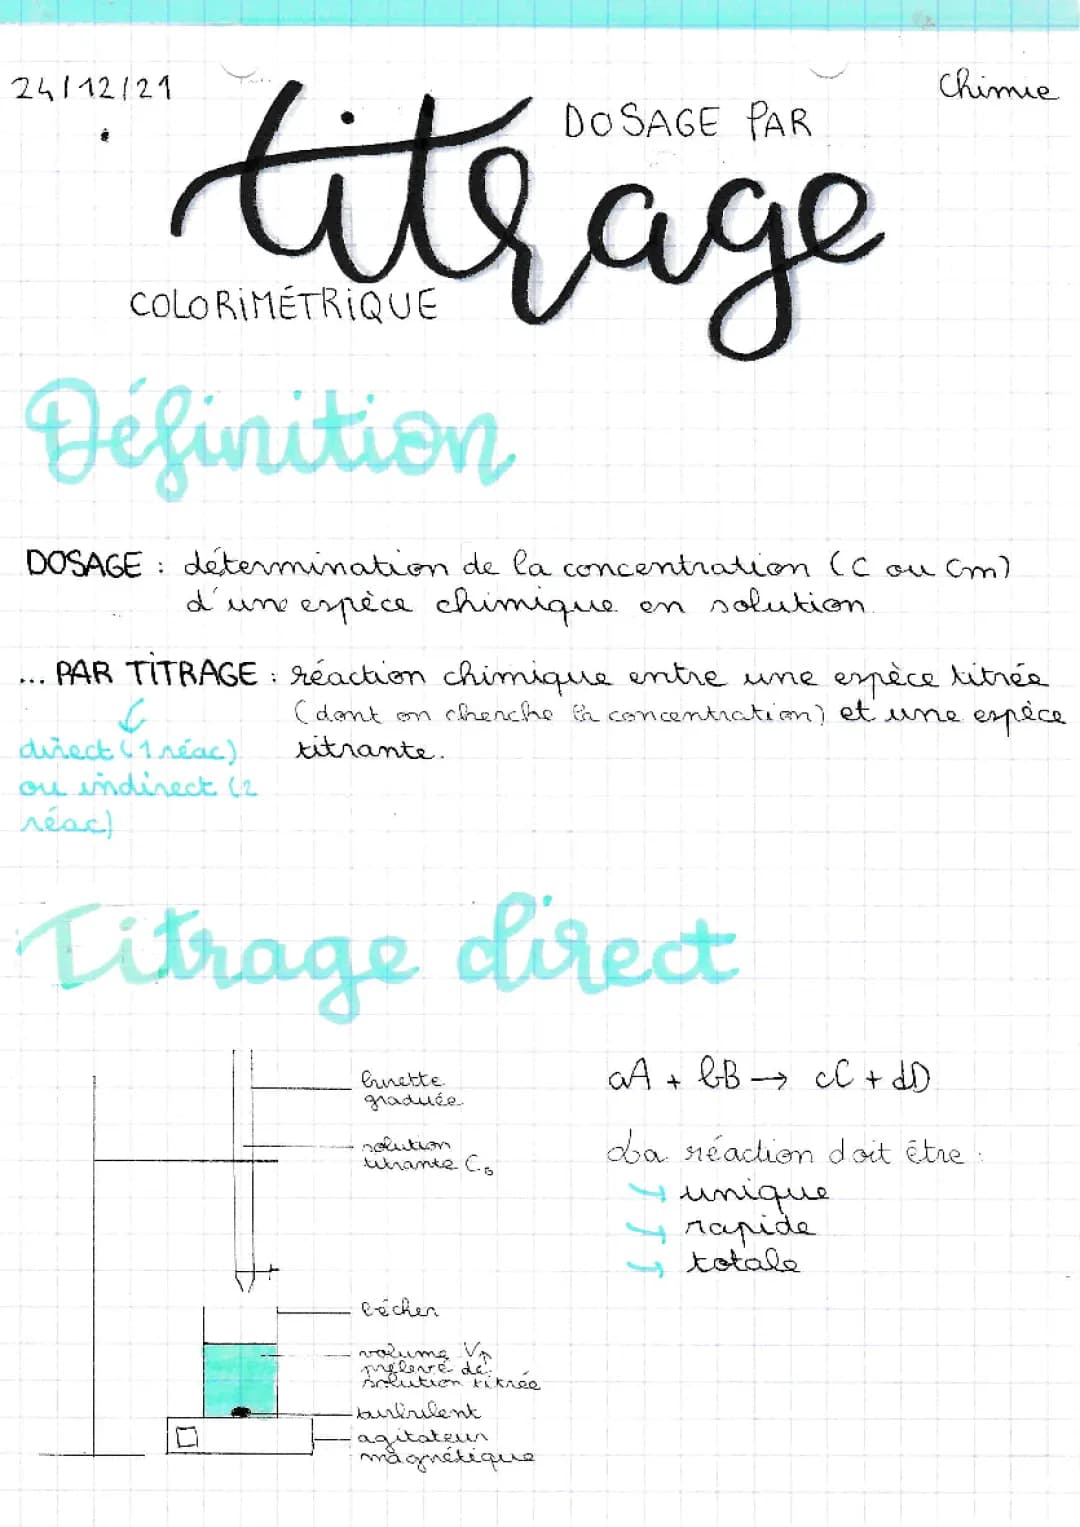 24/12/21
Chimie
DOSAGE PAR
titrage
COLORIMÉTRIQUE
Définition
DOSAGE : détermination de la concentration (C ou Cm)
d'une espèce chimique en solution.
... PAR TITRAGE : réaction chimique entre une espèce titrée
(dont on cherche la concentration) et une espèce
titrante.
direct (1 réac)
ou indirect (2
réac)
Titrage direct
burette
graduée
solution
titrante C₀
bécher
volume Vp
prélevé de
solution titrée
turbulent
agitateur
magnétique
aA + bB → cC + dD
La réaction doit être :
↪ unique
↪ rapide
↪ totale